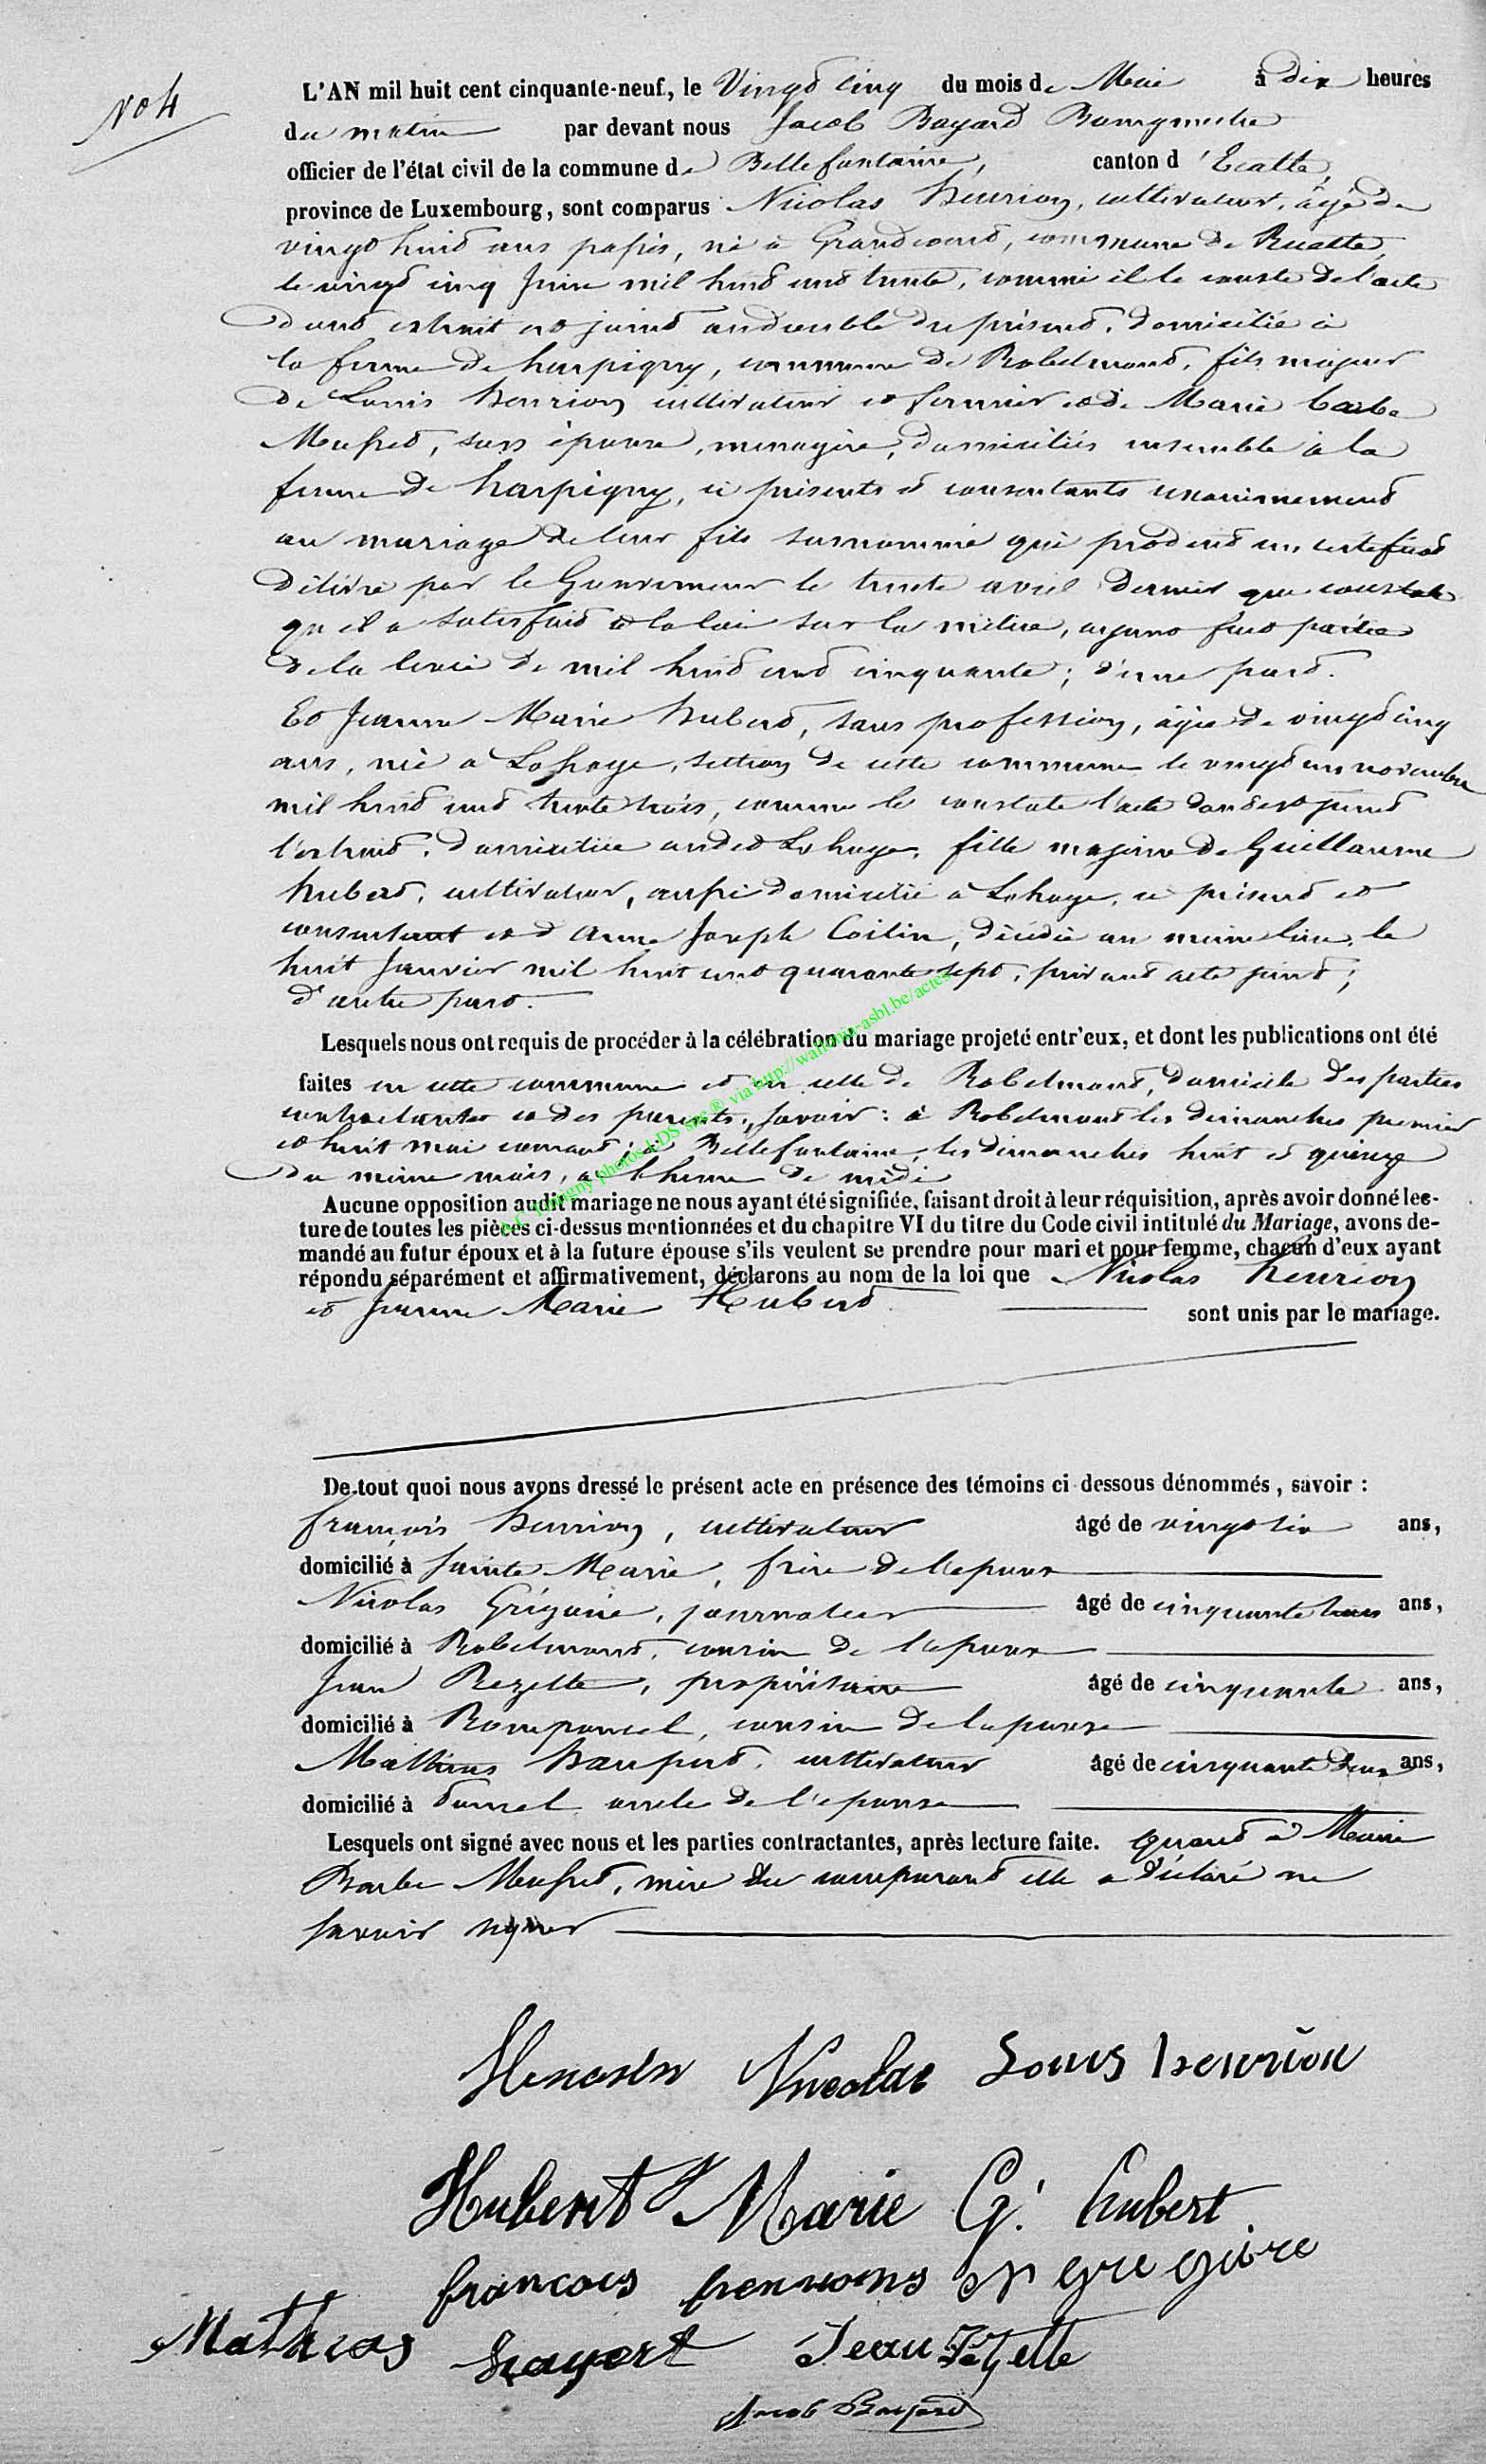 No 4
L'AN mil huit cent cinquante-neuf, le Vingt cinq du mois de Mai à dix heures
du matin par devant nous Jacob Bayard Bourgmestre
officier de l'état civil de la commune de Bellefontaine, canton d'Etalle,
province de Luxembourg, sont comparus Nicolas henrion, cultivateur, âgé de
vingt huit ans passés, né à Grandcourt, commune de Ruette,
le vingt cinq Juin mil huit cent trente, comme il le conste de l'acte
dont extrait est joint au double du présent, domicilié à
la ferme de harpigny, commune de Robelmont, fils majeur
de Louis henrion cultivateur et fermier et de Marie barbe
son épouse, ménagère, domiciliés ensemble à la
ferme de harpigny, ci présents et consentants unanimement
au mariage de leur fils surnommé qui produit un certificat
délivré par le Gouverneur le trente avril dernier que constate
qu'il a satisfait à la loi sur la milice, ayant fait partie
de la levée de mil huit cent cinquante; d'une part.
Et Jeanne Marie hubert, sans profession, âgée de vingt cinq
ans, née à Lahage, section de cette commune le vingt un novembre
mil huit cent trente trois, comme le constate l'acte dont est joint
l'extrait, domiciliée audit Lahage, fille majeure de Guillaume
hubert, cultivateur, aussi domicilié à Lahage, ci présent et
consentant et d'Anne Joseph Collin, décédée au même lieu, le
huit Janvier mil huit cent quarante sept, suivant acte joint;
d'autre part.
Lesquels nous ont requis de procéder à la célébration du mariage projeté entr'eux, et dont les publications ont été
faites en cette commune et en celle de Robelmont, domicile des parties
contractantes et des parents, savoir: à Robelmont les dimanches premier
et huit mai courant; à Bellefontaine, les dimanches huit et quinze
du même mois, à l'heure de midi
Aucune opposition audit mariage ne nous ayant été signifiée, faisant droit à leur réquisition, après avoir donné lec-
ture de toutes les pièces ci-dessus mentionnées et du chapitre VI du titre du Code civil intitulé du Mariage, avons de-
mandé au futur époux et à la future épouse s'ils veulent se prendre pour mari et pour femme, chacun d'eux ayant
répondu séparément et affirmativement, déclarons au nom de la loi que Nicolas henrion
et Jeanne Marie Hubert sont unis par le mariage.
De tout quoi nous avons dressé le présent acte en présence des témoins ci-dessous dénommés, savoir :
françois henrion, cultivateur âgé de vingt six ans,
domicilié à Sainte Marie, frère de l'époux
Nicolas Grégoire, journalier âgé de cinquante trois ans,
domicilié à Robelmont, cousin de l'époux
Jean Rezette, propriétaire âgé de cinquante ans,
domicilié à Romponcel, cousin de l'épouse
Mathias cultivateur âgé de cinquante deux ans,
domicilié à oncle de l'épouse
Lesquels ont signé avec nous et les parties contractantes, après lecture faite. quant à Marie
Barbe mère du comparant elle a déclaré ne
savoir signer
Henrion Nicolas Louis henrion
Hubert J Marie G. hubert
francois henrions N gre goire
Mathias hayert Jean Rezette
Jacob Bayard
photos LDS via http://wallonia-asbl.be/actes